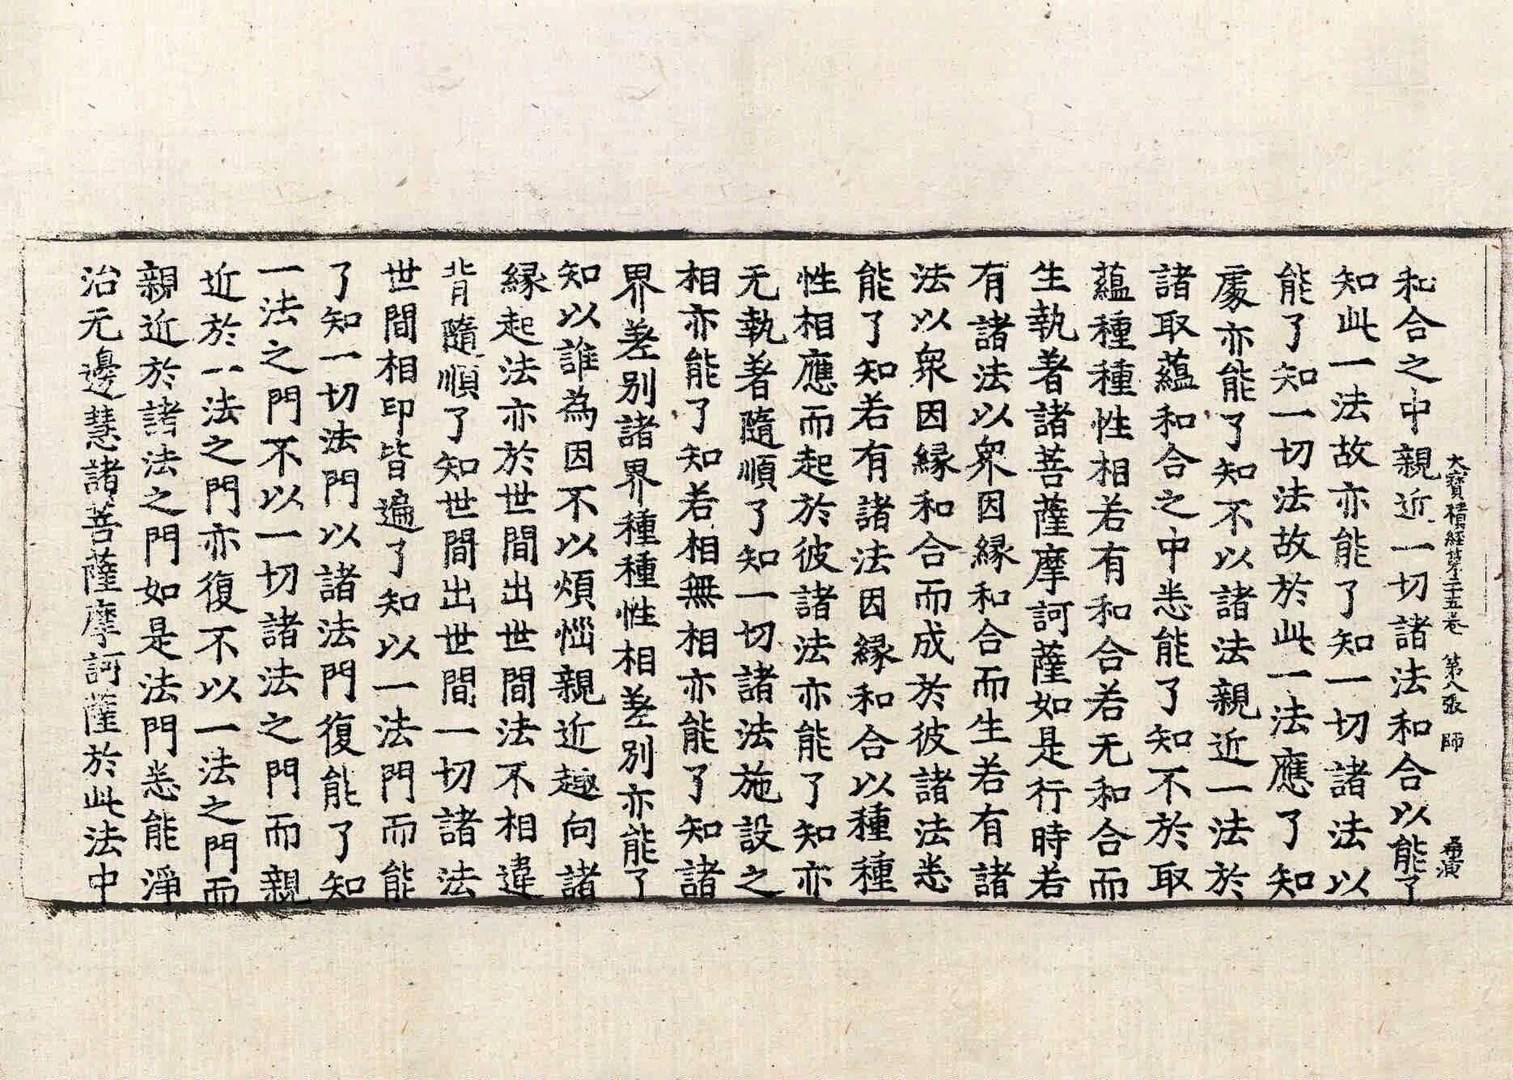 大寶積經第二十五卷 第八張 師
和合之中親近一切諸法和合以能了
知此一法故亦能了知一切諸法以
能了知一切法故於此一法應了知
處亦能了知不以諸法親近一法於
諸取蘊和合之中悉能了知不於取
蘊種種性相若有和合若无和合而
生執著諸菩薩摩訶薩如是行時若
有諸法以衆因緣和合而生若有諸
法以衆因緣和合而成於彼諸法悉
能了知若有諸法因緣和合以種種
性相應而起於彼諸法亦能了知亦
无執著隨順了知一切諸法施設之
相亦能了知若相無相亦能了知諸
界差別諸界種種性相差別亦能了
知以誰為因不以煩惱親近趣向諸
緣起法亦於世間出世間法不相違
背隨順了知世間出世間一切諸法
世間相印皆遍了知以一法門而能
了知一切法門以諸法門復能了知
一法之門不以一切諸法之門而親
近於一法之門亦復不以一法之門而
親近於諸法之門如是法門悉能淨
治无邊慧諸菩薩摩訶薩於此法中